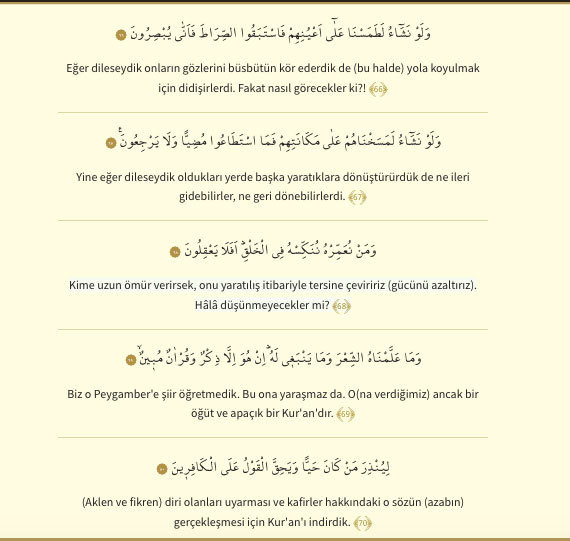 وَلَوْ نَشَٓاءُ لَطَمَسْنَا عَلٰٓى اَعْيُنِهِمْ فَاسْتَبَقُوا الصِّرَاطَ فَاَنّٰى يُبْصِرُونَ ﴿٦٦﴾
Eğer dileseydik onların gözlerini büsbütün kör ederdik de (bu halde) yola koyulmak
için didişirlerdi. Fakat nasıl görecekler ki?! ﴾66﴿
وَلَوْ نَشَٓاءُ لَمَسَخْنَاهُمْ عَلٰى مَكَانَتِهِمْ فَمَا اسْتَطَاعُوا مُضِيًّا وَلَا يَرْجِعُونَ۟ ﴿٦٧﴾
Yine eğer dileseydik oldukları yerde başka yaratıklara dönüştürürdük de ne ileri
gidebilirler, ne geri dönebilirlerdi. ﴾67﴿
وَمَنْ نُعَمِّرْهُ نُنَكِّسْهُ فِى الْخَلْقِۜ اَفَلَا يَعْقِلُونَ ﴿٦٨﴾
Kime uzun ömür verirsek, onu yaratılış itibariyle tersine çeviririz (gücünü azaltırız).
Hâlâ düşünmeyecekler mi? ﴾68﴿
وَمَا عَلَّمْنَاهُ الشِّعْرَ وَمَا يَنْبَغ۪ى لَهُۜ اِنْ هُوَ اِلَّا ذِكْرٌ وَقُرْاٰنٌ مُب۪ينٌۙ ﴿٦٩﴾
Biz o Peygamber'e şiir öğretmedik. Bu ona yaraşmaz da. O(na verdiğimiz) ancak bir
öğüt ve apaçık bir Kur'an'dır. ﴾69﴿
لِيُنْذِرَ مَنْ كَانَ حَيًّا وَيَحِقَّ الْقَوْلُ عَلَى الْكَافِر۪ينَ ﴿٧٠﴾
(Aklen ve fikren) diri olanları uyarması ve kafirler hakkındaki o sözün (azabın)
gerçekleşmesi için Kur'an'ı indirdik. ﴾70﴿